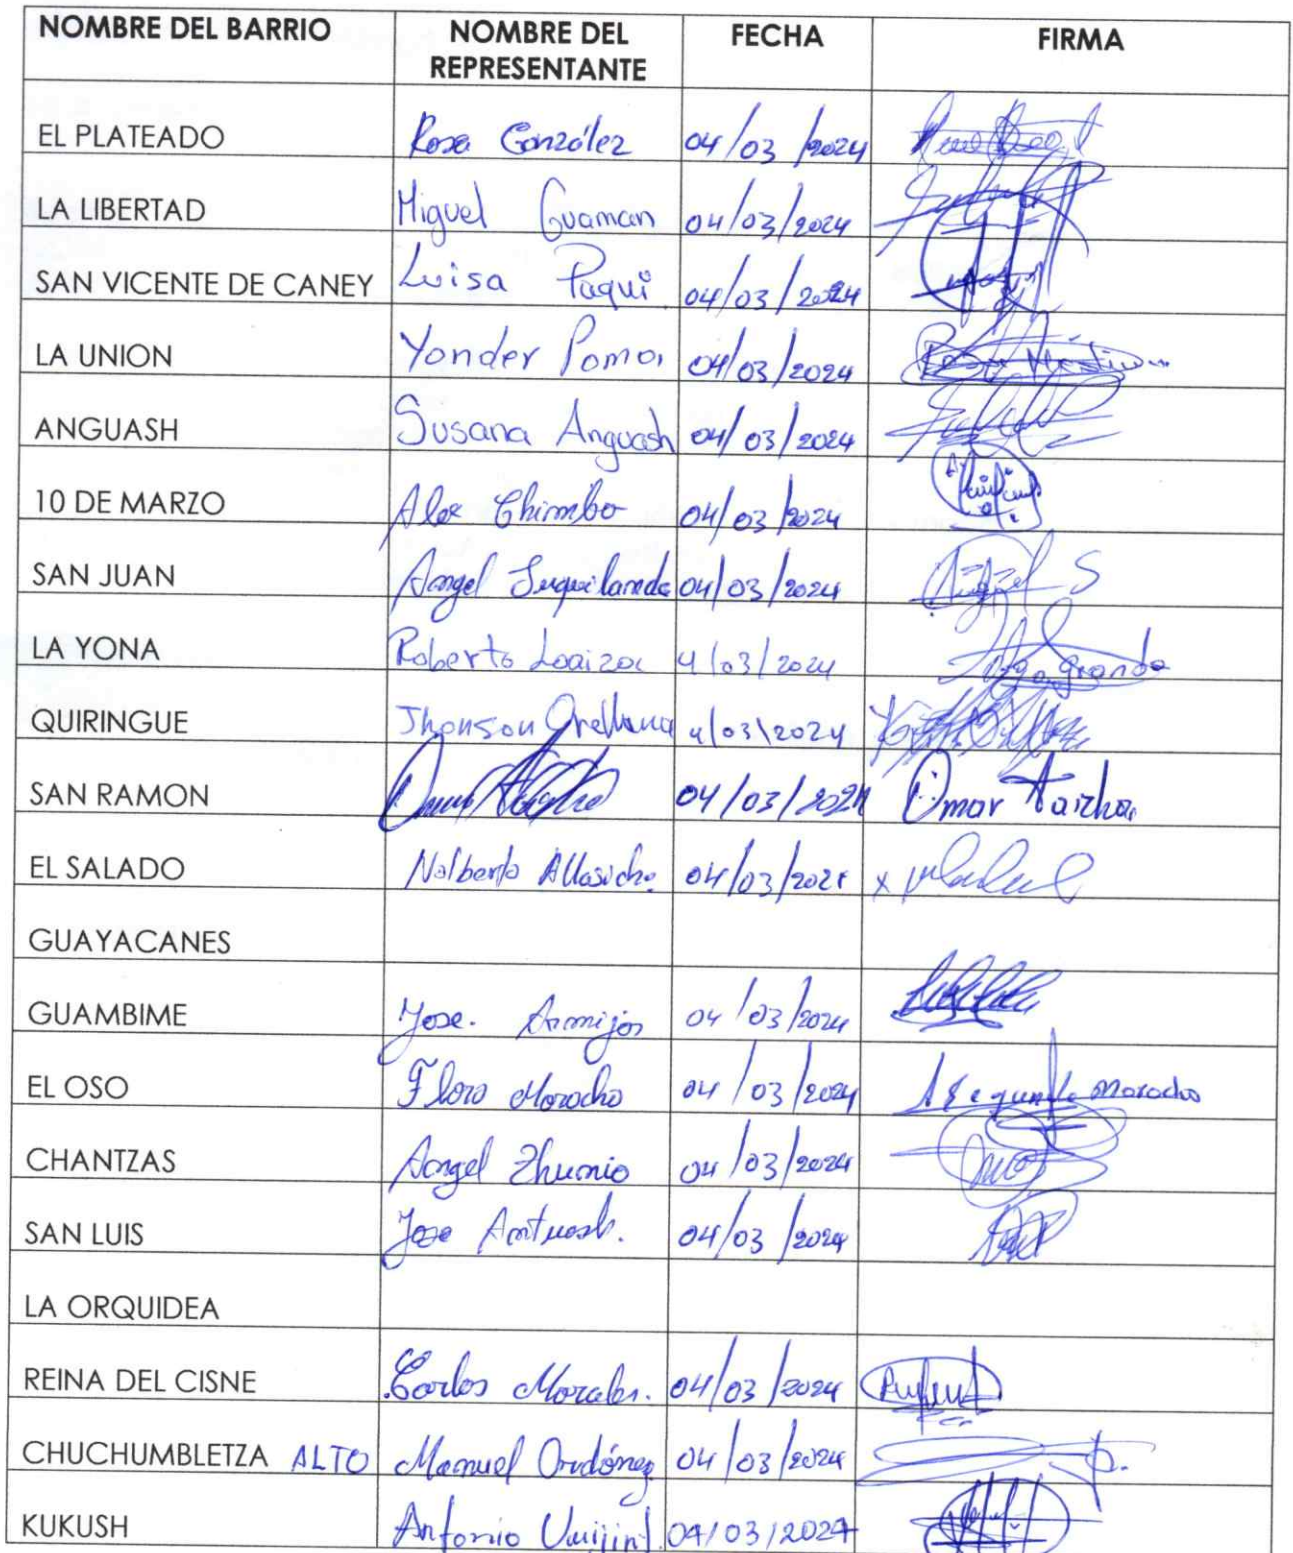 NOMBRE DEL BARRIO NOMBRE DEL REPRESENTANTE FECHA FIRMA
EL PLATEADO Rosa González 04/03/2024
LA LIBERTAD Miguel Guaman 04/03/2024
SAN VICENTE DE CANEY Luisa Paqui 04/03/2024
LA UNION Yonder Poma 04/03/2024
ANGUASH Susana Anguash 04/03/2024
10 DE MARZO Alex Chimbo 04/03/2024
SAN JUAN Angel Suquilanda 04/03/2024 Angel S
LA YONA Roberto Loaiza 4/03/2024 Granda
QUIRINGUE Jhonson Orellana 4/03/2024
SAN RAMON 04/03/2024 Omar Taizha
EL SALADO Nolberto 04/03/202 x
GUAYACANES
GUAMBIME Jose. Armijos 04/03/2024
EL OSO Floro Morocho 04/03/2024 Segundo Morocho
CHANTZAS Angel Zhunio 04/03/2024
SAN LUIS Jose Antuash. 04/03/2024
LA ORQUIDEA
REINA DEL CISNE Carlos Morales. 04/03/2024
CHUCHUMBLETZA ALTO Manuel Ordónez 04/03/2024
KUKUSH Antonio 04/03/2024